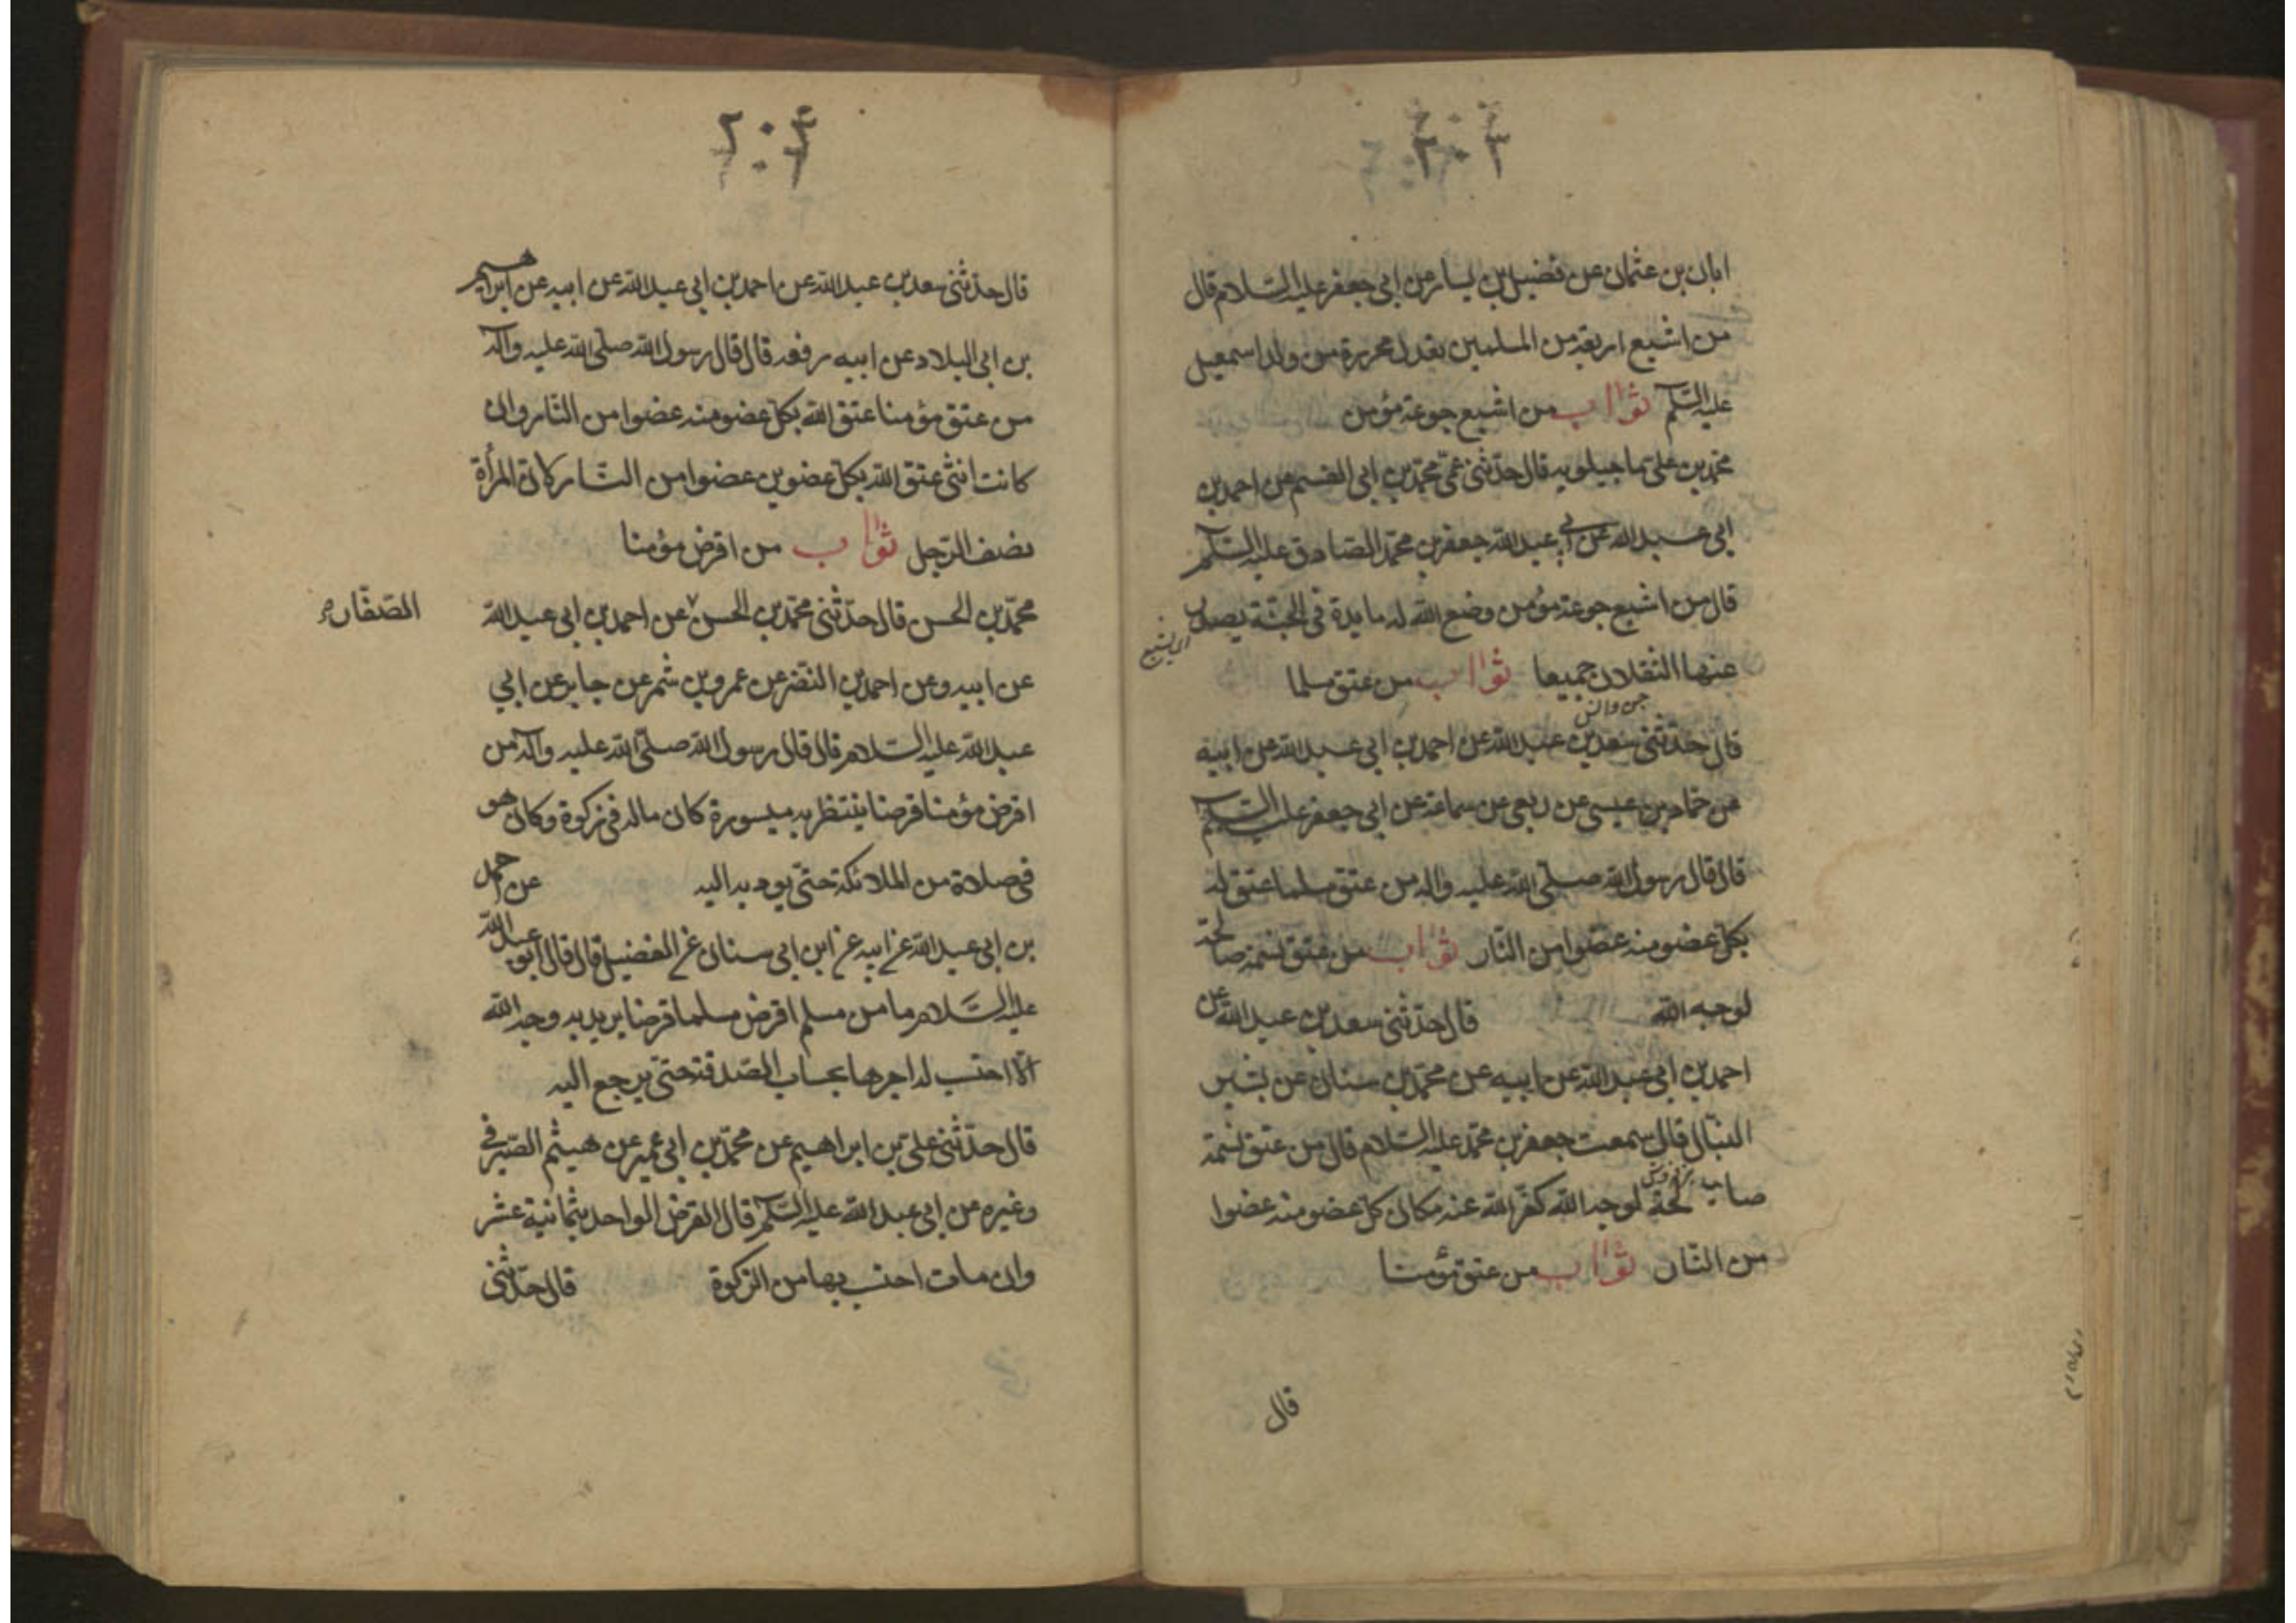 ابان بن عثمان عن فضيل بن يسار عن ابى جعفر عليه السلام قال
من اشبع اربعة من المسلمين يعدل محررة من ولد اسمعيل
عليه السلم ثواب من اشبع جوعة مؤمن
محمد بن على ماجيلويه قال حدثنى عمى محمد بن ابى القسم عن احمد بن
ابى عبد الله عن ابى عبد الله جعفر بن محمد الصادق عليه السلم
قال من اشبع جوعة مؤمن وضع الله له مايدة فى الجنة يصدر
عنها الثقلان جميعا ثواب من عتق مسلما
جن وانس
قال حدثنى سعد بن عبد الله عن احمد بن ابى عبد الله عن ابيه
عن حماد بن عيسى عن ربعى عن سماعة عن ابى جعفر عليه السلم
قال قال رسول الله صلى الله عليه واله من عتق مسلما عتق له
بكل عضو منه عضوا من النار ثواب من عتق نسمة صالحة
لوجه الله قال حدثنى سعد بن عبد الله عن
احمد بن ابى عبد الله عن ابيه عن محمد بن سنان عن بشير
النبال قال سمعت جعفر بن محمد عليه السلام قال من عتق نسمة
صالحة لوجه الله كفر الله عنه مكان كل عضو منه عضوا
من النار ثواب من عتق مؤمنا
قال
٢٠٤
قال حدثنى سعد بن عبد الله عن احمد بن ابى عبد الله عن ابيه عن ابراهيم
بن ابى البلاد عن ابيه رفعه قال قال رسول الله صلى الله عليه وآله
من عتق مؤمنا عتق الله بكل عضو منه عضوا من النار وان
كانت انثى عتق الله بكل عضوين عضوا من النار كان المرأة
نصف الرجل ثواب من اقرض مؤمنا
محمد بن الحسن قال حدثنى محمد بن الحسن عن احمد بن ابى عبد الله
الصفار
عن ابيه وعن احمد بن النضر عن عمرو بن شمر عن جابر عن ابي
عبد الله عليه السلام قال قال رسول الله صلى الله عليه وآله من
اقرض مؤمنا قرضا ينتظر به ميسورة كان ماله فى زكوة وكان هو
فى صلاة من الملائكة حتى يوديه اليه عن احمد
بن ابى عبد الله عن ابيه عن ابن ابى سنان عن الفضيل قال قال ابو عبد الله
عليه السلام ما من مسلم اقرض مسلما قرضا يريد به وجه الله
الا احتسب له اجرها بحساب الصدقة حتى يرجع اليه
قال حدثنى على بن ابراهيم عن محمد بن ابى عمير عن هيثم الصيرفى
وغيره عن ابى عبد الله عليه السلم قال القرض الواحد بثمانية عشر
وان مات احتسب بها من الزكوة قال حدثنى